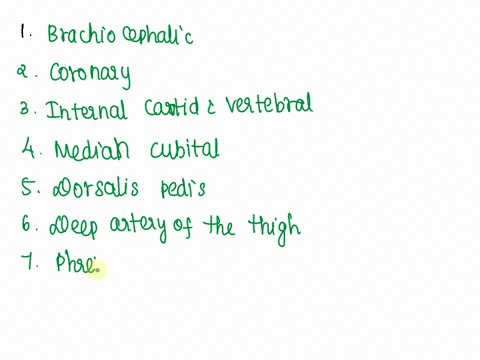 1. Brachio cephalic
2. Coronary
3. Internal cartid & vertebral
4. Median cubital
5. Dorsalis pedis
6. Deep artery of the thigh
7. Phre